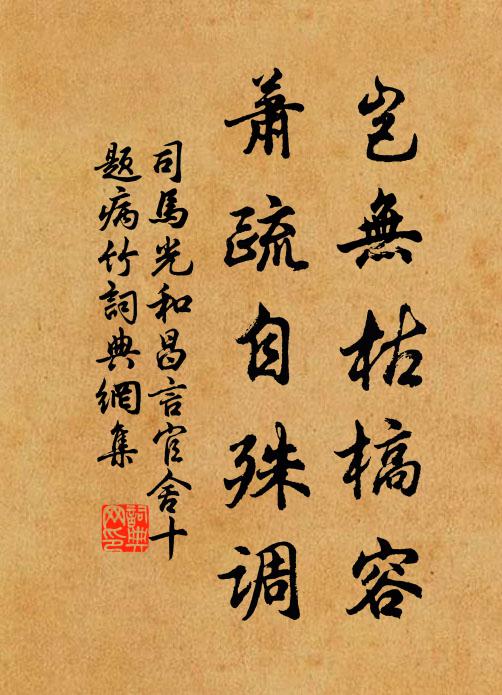 岂無枯槁容
蕭疏自殊调
司馬光和昌言官舍十
题病竹詞典網集
詞典网印